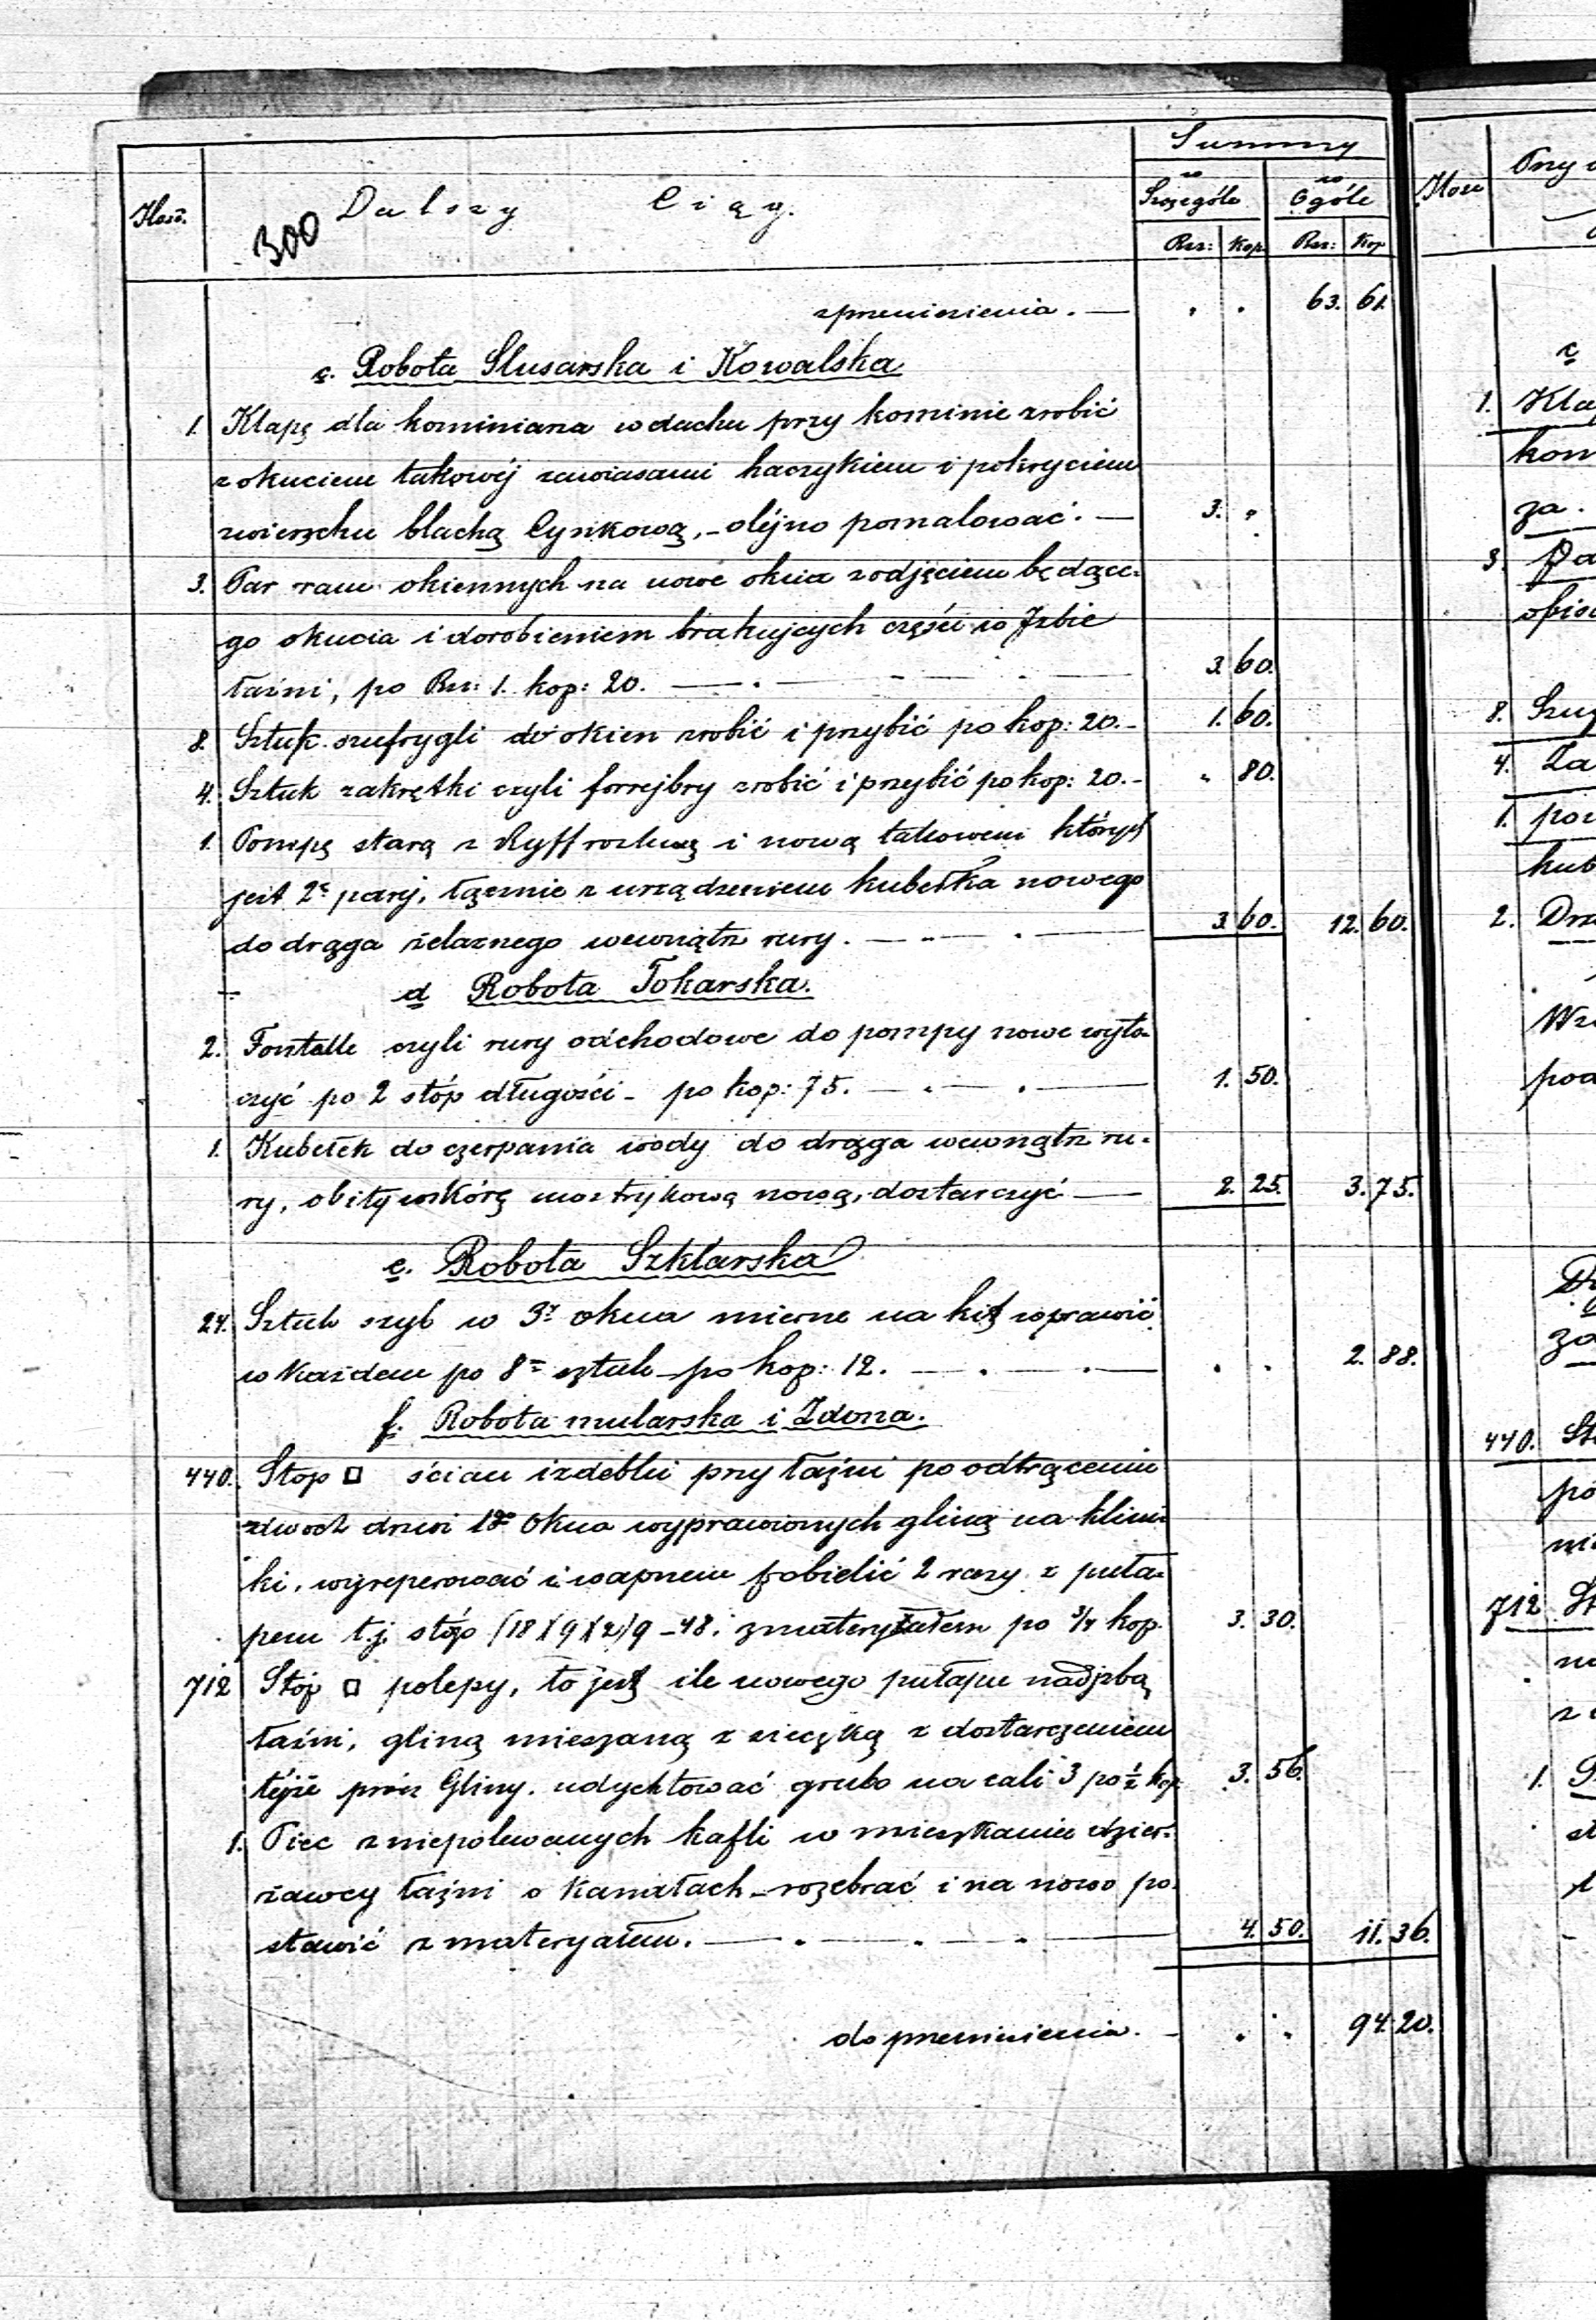 Ilość.
300
Dalszy Ciąg.
Summy
w Szczególe
w Ogóle
Rsr: Kop Rsr: Kop
zprzeniesienia. — 63. 61.
c. Robota Slusarska i Kowalska
1. Klapę dla kominiarza w dachu przy kominie zrobić
z okuciem takowéj zawiasami haczykiem i pokryciem
zwierzchu blachą Cynkową, - oléjno pomalować. — 3. "
3. Par ram okiennych na nowe okna z odjęciem będące-
go okucia i dorobieniem brakujcych części w Izbie
łaźni, po Rsr: 1. kop: 20. — 3. 60.
8. Sztuk szufrygli do okien zrobić i przybić po kop: 20. - 1. 60.
4. Sztuk zakrętki czyli forrejbry zrobić i przybić po kop: 20. - " 80.
1. Pompę starą z Ryff i nową których
jest 2e pary, łącznie z urządzeniem kubełka nowego
do drąga żelaznego wewnątrz rury. — 3. 60. 12. 60.
d Robota Tokarska.
2. Fontalle czyli rury odchodowe do pompy nowe wyto-
czyć po 2 stóp długości - po kop: 75. — 1. 50.
1. Kubełek do czerpania wody do drąga wewnątrz ru-
ry, obity skórą nową, dostarczyć — 2. 25. 3. 75.
e. Robota Szklarska
24. Sztuk szyb w 3y okna mierne na kit wprawić
w każdem po 8m sztuk - po kop: 12. — 2. 88.
f. Robota mularska i Zdona.
440. Stop □ ścian izdebki przy łaźni po odtrąceniu
zdwoch drzwi okna wyprawionych gliną na klini-
ki, wyreperować i wapnem pobielić 2 razy z puła-
pem t.j. stóp (18)(9)(2)9 - 48. z materyałem po 3/4 kop. 3. 30.
712 Stóp □ polepy, to jest ile nowego pułapu nad izbą
łaźni, gliną mieszaną z sieczką z dostarczeniem
téjże prócz Gliny. udychtować grubo na cali 3 po ½ kop. 3. 56.
1. Piec z niepolewanych kafli w mieszkaniu dzier-
żawcy łaźni o kanałach - rozebrać i na nowo po-
stawić z materyałem. — 4. 50. 11. 36.
do przeniesienia. - 94 20.
Ilość
c
1. Kla
kom
za.
3. Pa
8. Szu
4. Za
1.
kub
2.
pod
440. St
712. St
1.